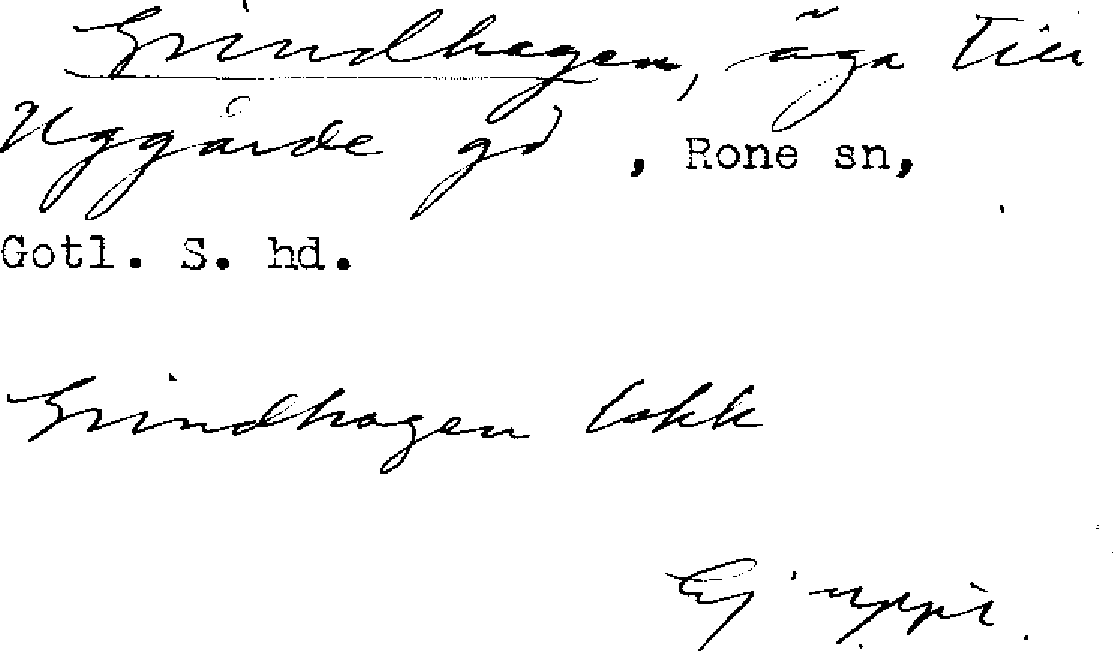 Grindhagen, äga till
Uggårde gd, Rone sn,
Gotl. S. hd.
Grindhagen
Ej uppt.